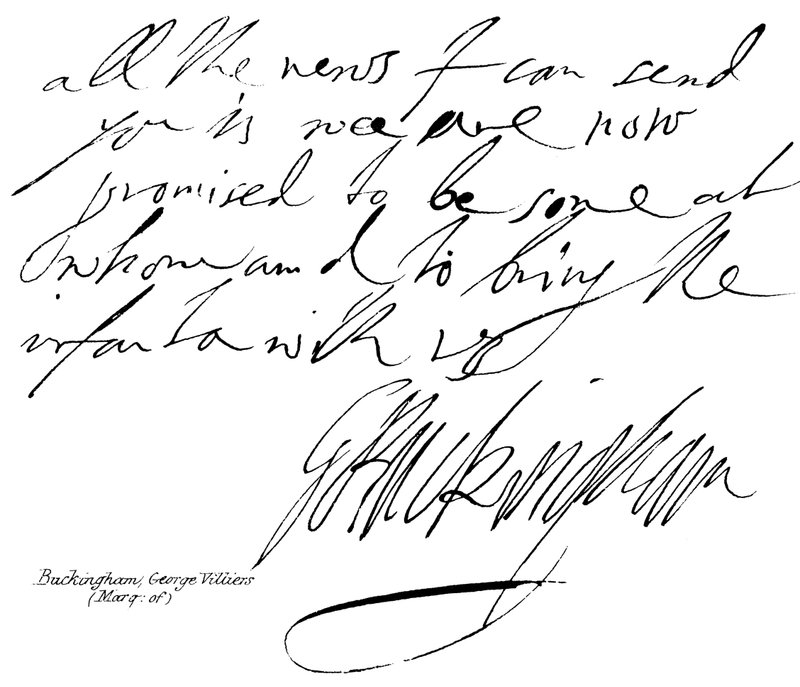 all the news I can send
you is wee are now
promised to be sone at
whome and to bring the
infanta with us
G Buckingham
Buckingham, George Villiers
(Marq: of)